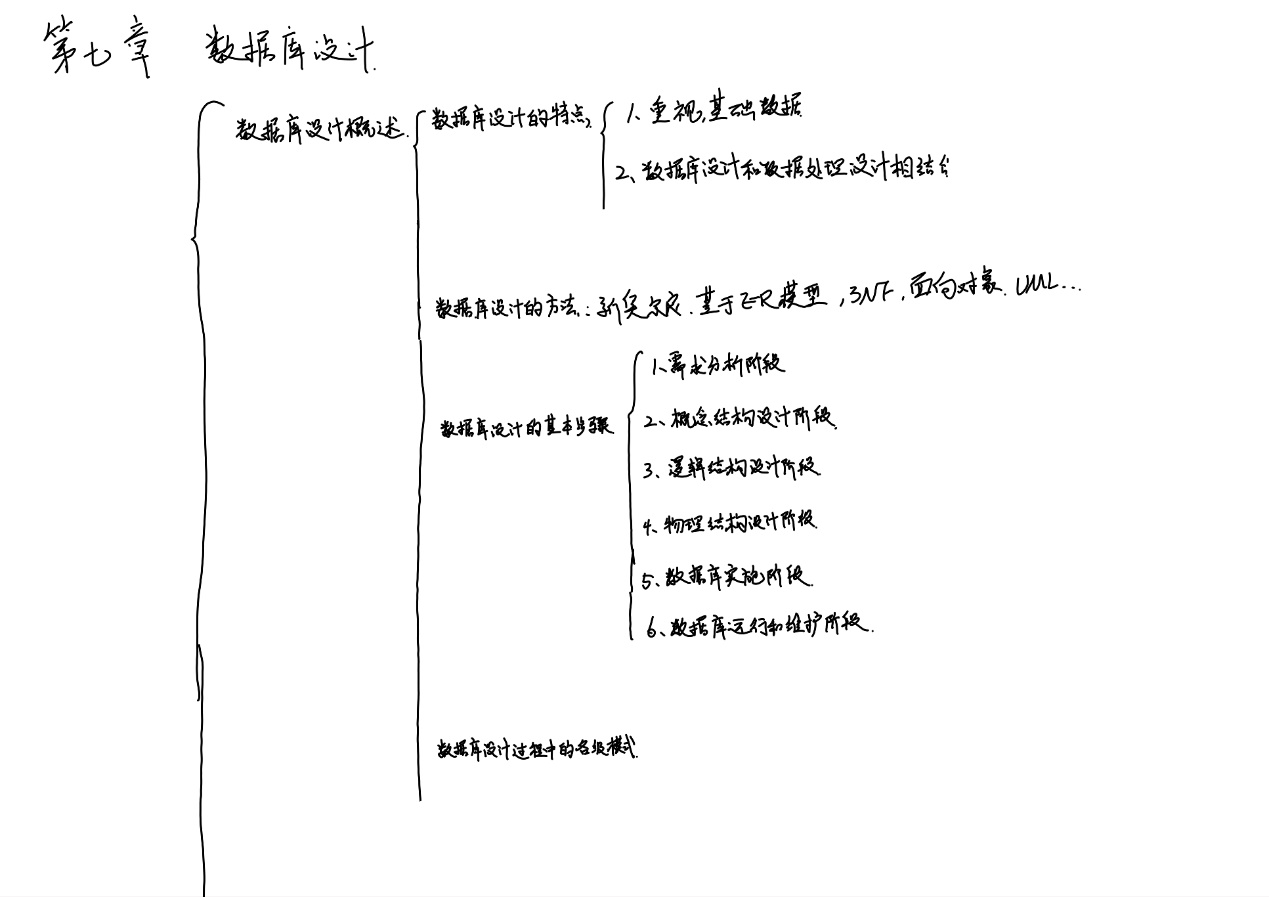 第七章 数据库设计.
数据库设计概述.
数据库设计的特点
1、重视基础数据
2、数据库设计和数据处理设计相结合
数据库设计的方法:新奥尔良.基于E-R模型,3NF,面向对象.UML...
数据库设计的基本步骤
1、需求分析阶段
2、概念结构设计阶段.
3、逻辑结构设计阶段.
4、物理结构设计阶段.
5、数据库实施阶段.
6、数据库运行和维护阶段.
数据库设计过程中的各级模式.